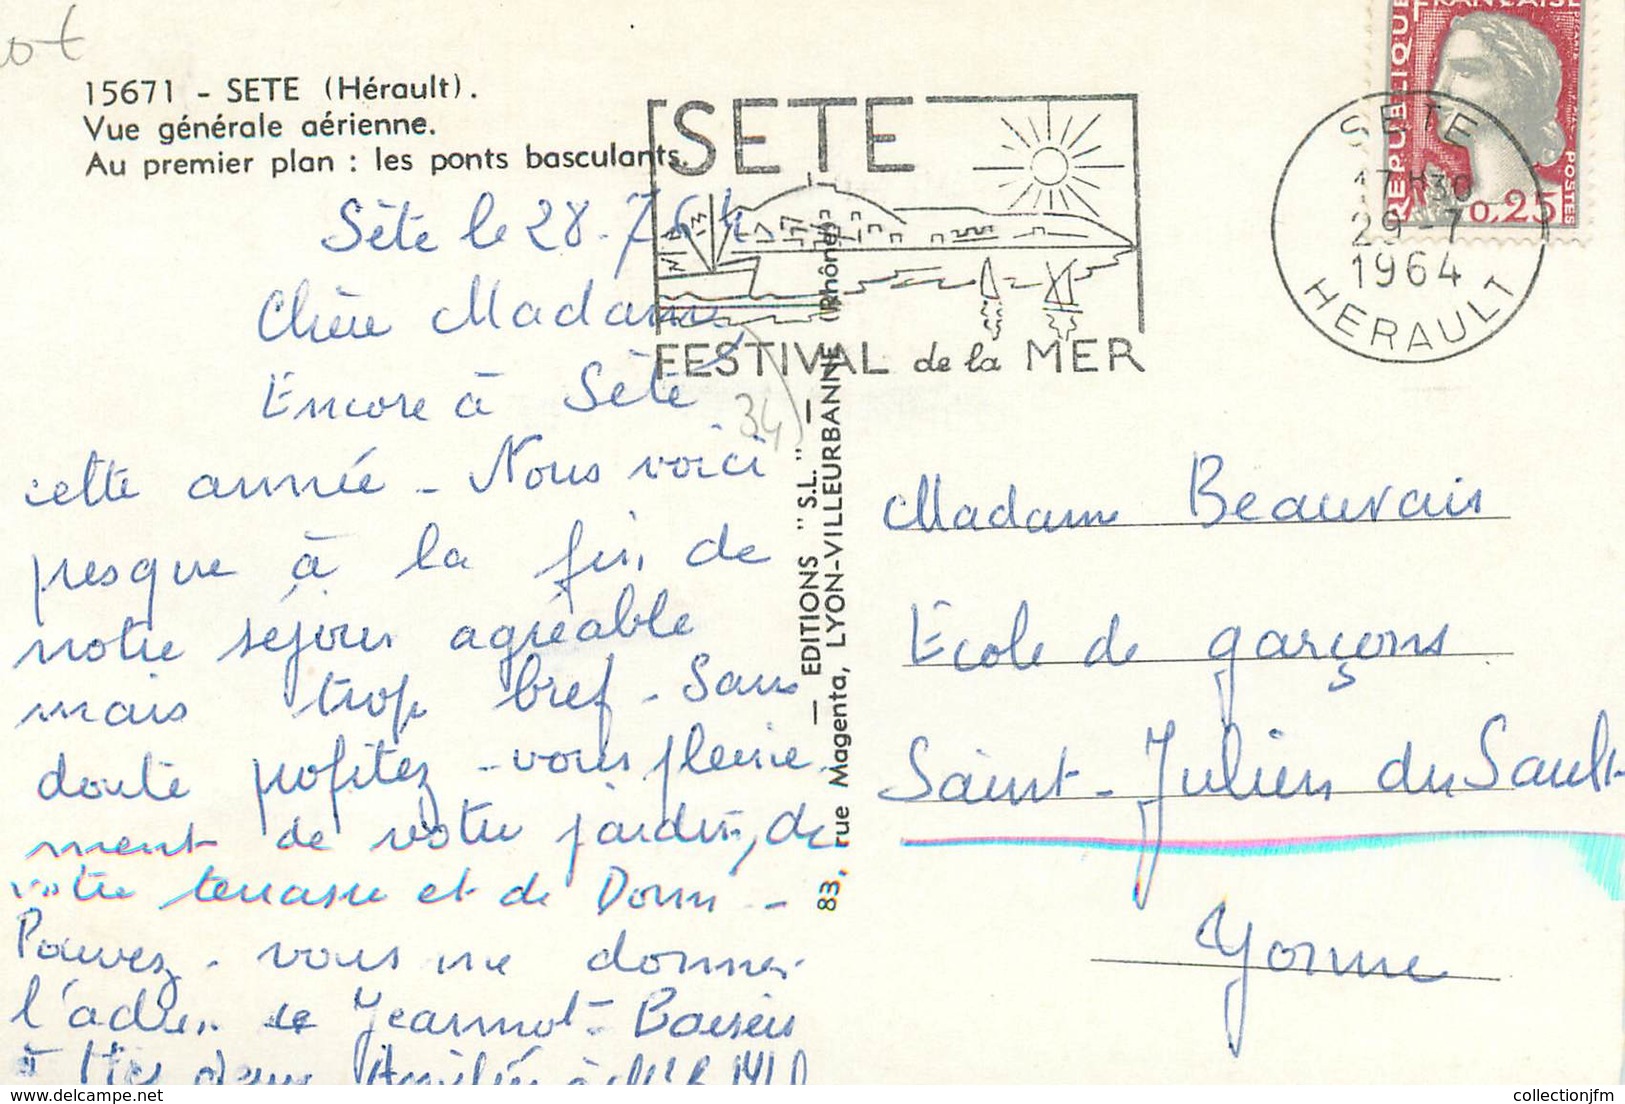 15671 - SETE (Hérault).
Vue générale aérienne.
Au premier plan : les ponts basculants.
SETE
FESTIVAL de la MER
REPUBLIQUE
FRANÇAISE
POSTES
0,25
SETE
17H30
29-7
1964
HERAULT
34
Sète le 28.7.64
Chère Madame,
Encore à Sète
cette année - Nous voici
presque à la fin de
notre séjour agréable
mais trop bref - Sans
doute profitez-vous pleine
ment de votre jardin, de
votre terrasse et de Domi -
Pouvez-vous me donner
l'adres. de Jeannot - Baisers
à
— EDITIONS "S.L." —
83, rue Magenta, LYON-VILLEURBANNE (Rhône)
Madame Beauvais
Ecole de garçons
Saint-Julien du Sault
Yonne
www.delcampe.net
collectionjfm